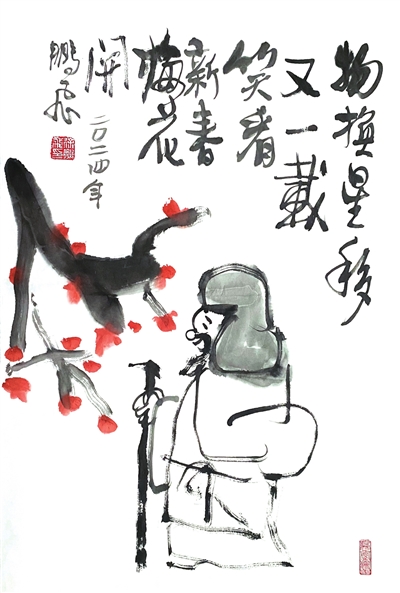 物换星移
又一载
笑看
新春
梅花
開
二〇二四年
鹏飛